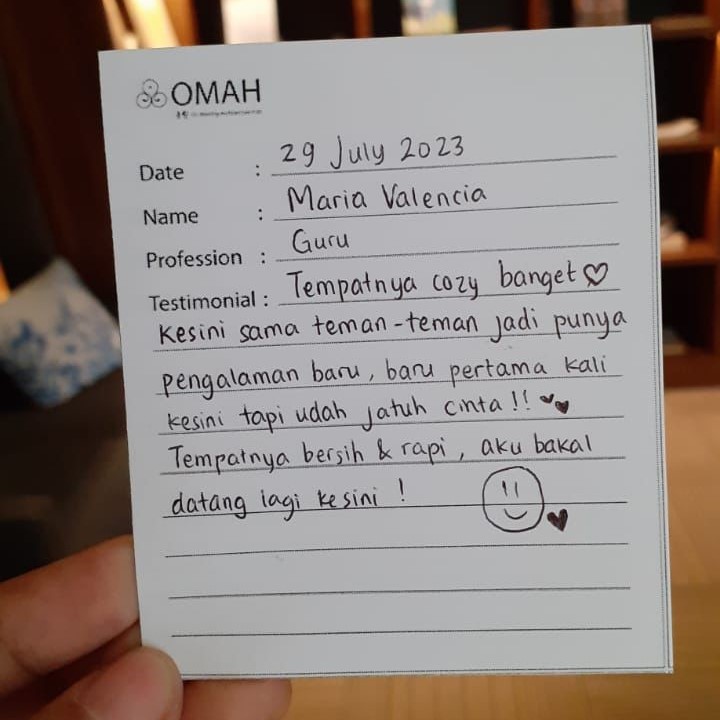 OMAH
Date : 29 July 2023
Name : Maria Valencia
Profession : Guru
Testimonial : Tempatnya cozy banget♡
kesini sama teman-teman jadi punya
pengalaman baru, baru pertama kali
kesini tapi udah jatuh cinta !! ♥♥
Tempatnya bersih & rapi, aku bakal
datang lagi kesini !